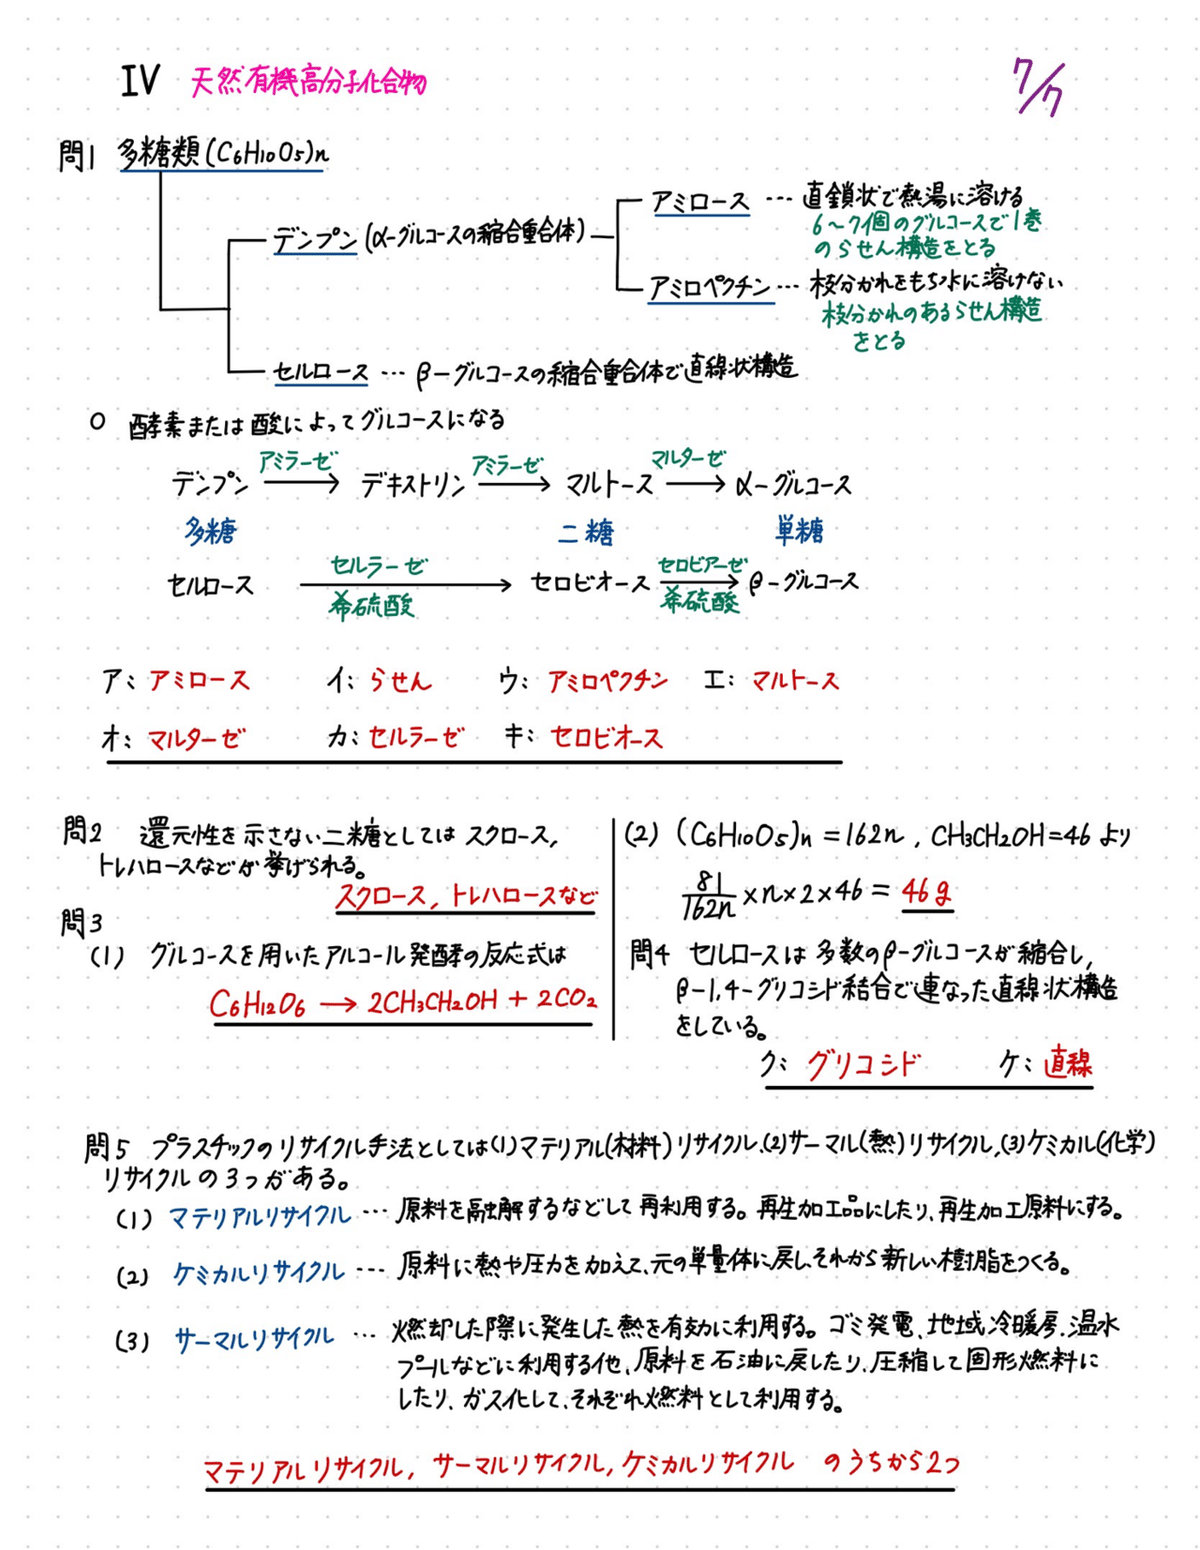 IV 天然有機高分子化合物
7/7
問1 多糖類(C6H10O5)n
デンプン(α-グルコースの縮合重合体)
アミロース … 直鎖状で熱湯に溶ける
6〜7個のグルコースで1巻
のらせん構造をとる
アミロペクチン … 枝分かれをもち水に溶けない
枝分かれのあるらせん構造
をとる
セルロース … β-グルコースの縮合重合体で直線状構造
○ 酵素または酸によってグルコースになる
アミラーゼ アミラーゼ マルターゼ
デンプン → デキストリン → マルトース → α-グルコース
多糖 二糖 単糖
セルラーゼ セロビアーゼ
セルロース → セロビオース → β-グルコース
希硫酸 希硫酸
ア: アミロース イ: らせん ウ: アミロペクチン エ: マルトース
オ: マルターゼ カ: セルラーゼ キ: セロビオース
問2 還元性を示さない二糖としてはスクロース,
トレハロースなどが挙げられる。
スクロース, トレハロースなど
問3
(1) グルコースを用いたアルコール発酵の反応式は
C6H12O6 → 2CH3CH2OH + 2CO2
(2) (C6H10O5)n = 162n , CH3CH2OH = 46 より
81/162n × n × 2 × 46 = 46g
問4 セルロースは多数のβ-グルコースが縮合し,
β-1,4-グリコシド結合で連なった直線状構造
をしている。
ク: グリコシド ケ: 直線
問5 プラスチックのリサイクル手法としては(1)マテリアル(材料)リサイクル、(2)サーマル(熱)リサイクル、(3)ケミカル(化学)
リサイクルの3つがある。
(1) マテリアルリサイクル … 原料を融解するなどして再利用する。再生加工品にしたり、再生加工原料にする。
(2) ケミカルリサイクル … 原料に熱や圧力を加えて、元の単量体に戻し、それから新しい樹脂をつくる。
(3) サーマルリサイクル … 燃却した際に発生した熱を有効に利用する。ゴミ発電、地域冷暖房、温水
プールなどに利用する他、原料を石油に戻したり、圧縮して固形燃料に
したり、ガス化して、それぞれ燃料として利用する。
マテリアルリサイクル, サーマルリサイクル, ケミカルリサイクル のうちから2つ